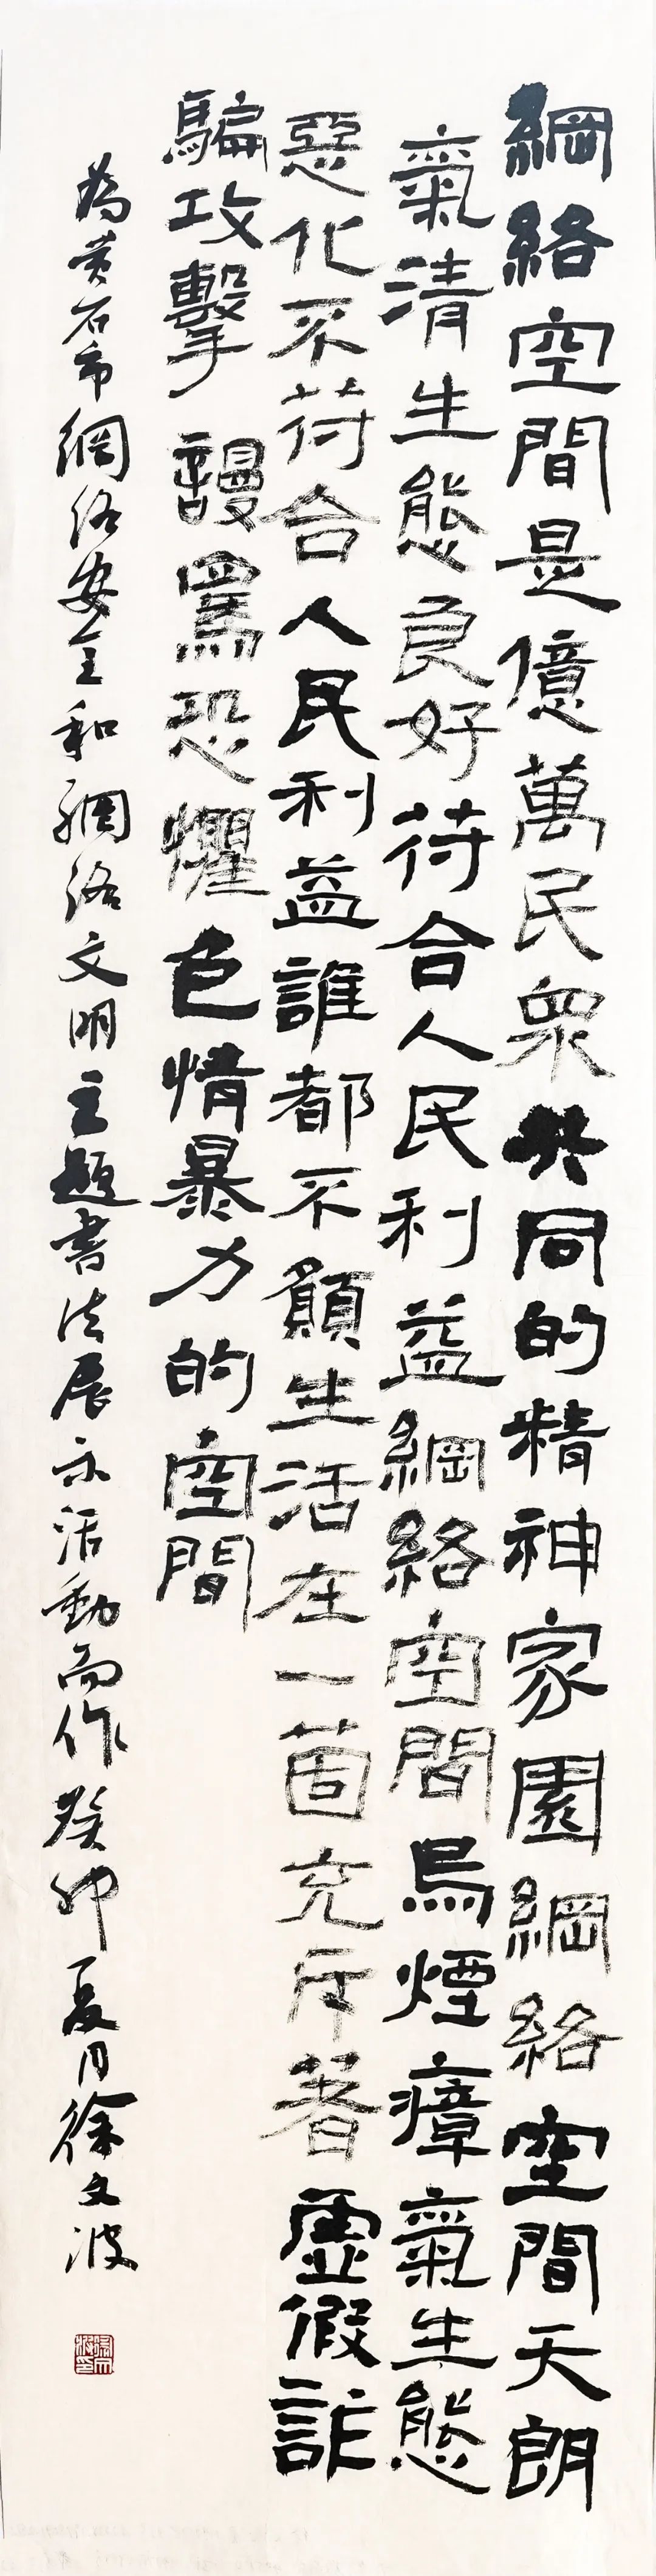 網絡空間是億萬民眾共同的精神家園網絡空間天朗
氣清生態良好符合人民利益網絡空間烏煙瘴氣生態
惡化不符合人民利益誰都不願生活在一箇充斥著虛假詐
騙攻擊謾罵恐懼色情暴力的空間
為黃石市網絡安全和網絡文明主題書法展示活動而作癸卯夏月徐文波